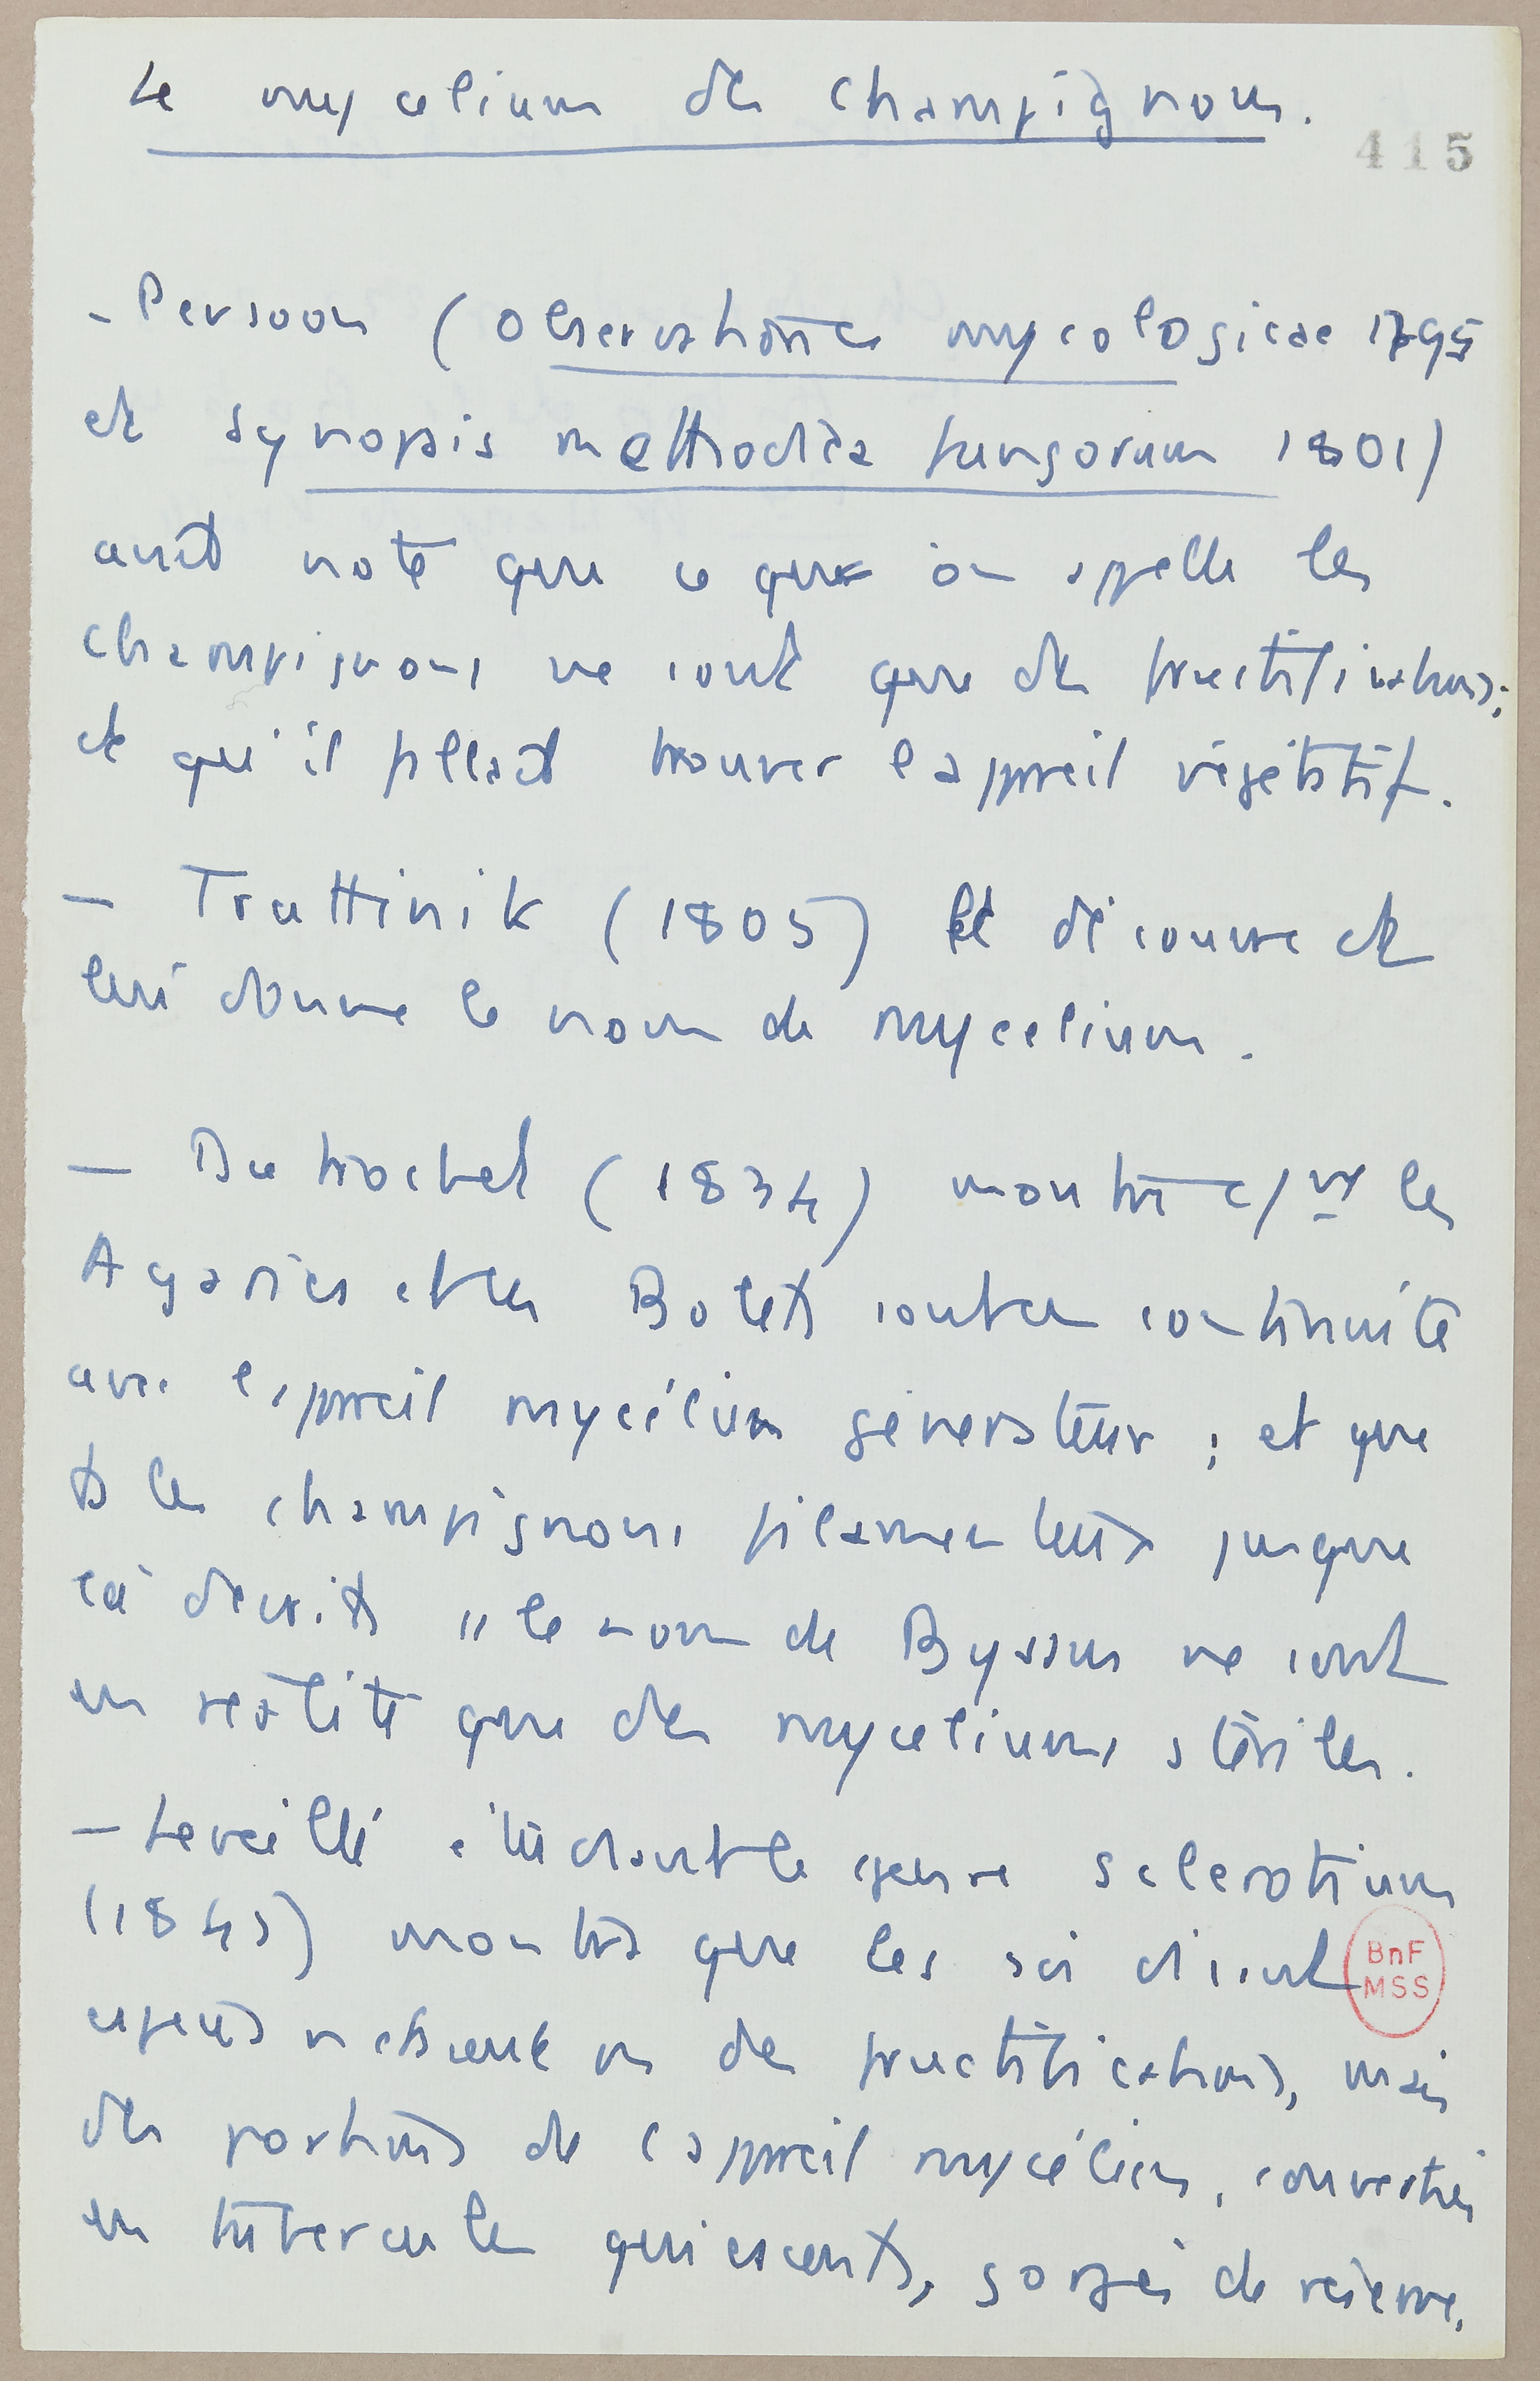 Le mycelium des champignons.
415
- Persoon (Observationes mycologicae 1795
et Synopsis methodica fungorum 1801)
avait noté que ce que on appelle les
champignons ne sont que des fructifications;
et qu'il fallait trouver l'appareil végétatif.
- Trattinik (1805) le découvre et
lui donne le nom de mycelium.
- Dutrochet (1834) montre c/ les
Agarics et les Bolets sont en continuité
avec l'appareil mycélien générateur ; et que
ts les champignons filamenteux jusque
là décrits ss le nom de Byssus ne sont
en réalité que des myceliums stériles.
- Leveillé étudiant le genre Sclerotium
(1843) montra que les soi disant
BnF
MSS
espèces n'étaient ni des fructifications, mais
des portions de l'appareil mycélien, converties
en tubercules quiescents, gorgés de réserve.